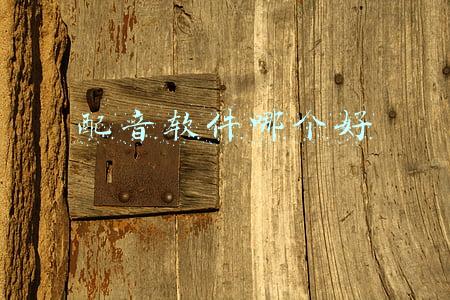 配音软件哪个好